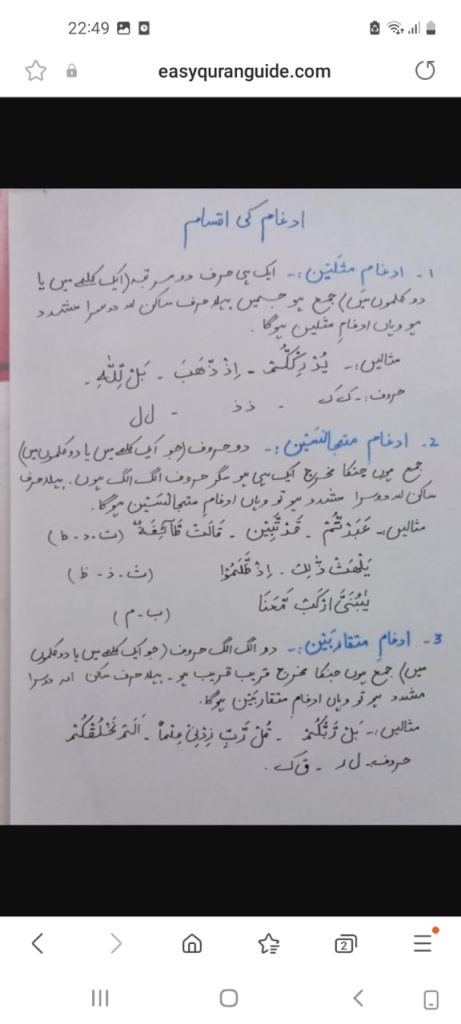 22:49
easyquranguide.com
ادغام کی اقسام
1۔ ادغامِ مثلَین:۔ ایک ہی حرف دو مرتبہ (ایک کلمے میں یا
دو کلموں میں) جمع ہو جسمیں پہلا حرف ساکن اور دوسرا مشدد
ہو وہاں ادغامِ مثلین ہوگا۔
مثالیں:۔ یُدْرِکْکُّمْ ۔ اِذْ ذَّھَبَ ۔ بَلْ لِّلّٰہِ ۔
حروف:۔ ک ک ۔ ذ ذ ۔ ل ل
2۔ ادغامِ متجانسَین:۔ دو حروف (جو ایک کلمے میں یا دو کلموں میں)
جمع ہوں جنکا مخرج ایک ہی ہو مگر حروف الگ الگ ہوں۔ پہلا حرف
ساکن اور دوسرا مشدد ہو تو وہاں ادغامِ متجانسَین ہوگا۔
مثالیں:۔ عَبَدْتُّمْ ۔ قَدْ تَّبَیَّنَ ۔ قَالَتْ طَّآئِفَةٌ (ت ۔ د ۔ ط)
یَلْھَثْ ذّٰلِكَ ۔ اِذْ ظَّلَمُوْا (ث ۔ ذ ۔ ظ)
یٰبُنَیَّ ارْکَبْ مَّعَنَا (ب ۔ م)
3۔ ادغامِ متقاربَین:۔ دو الگ الگ حروف (جو ایک کلمے میں یا دو کلموں
میں) جمع ہوں جنکا مخرج قریب قریب ہو۔ پہلا حرف ساکن اور دوسرا
مشدد ہو تو وہاں ادغام متقاربَین ہوگا۔
مثالیں:۔ بَلْ رَّبُّکُمْ ۔ قُلْ رَّبِّ زِدْنِیْ عِلْمًا ۔ اَلَمْ نَخْلُقْکُّمْ
حروف۔ ل ر ۔ ق ک ۔
2